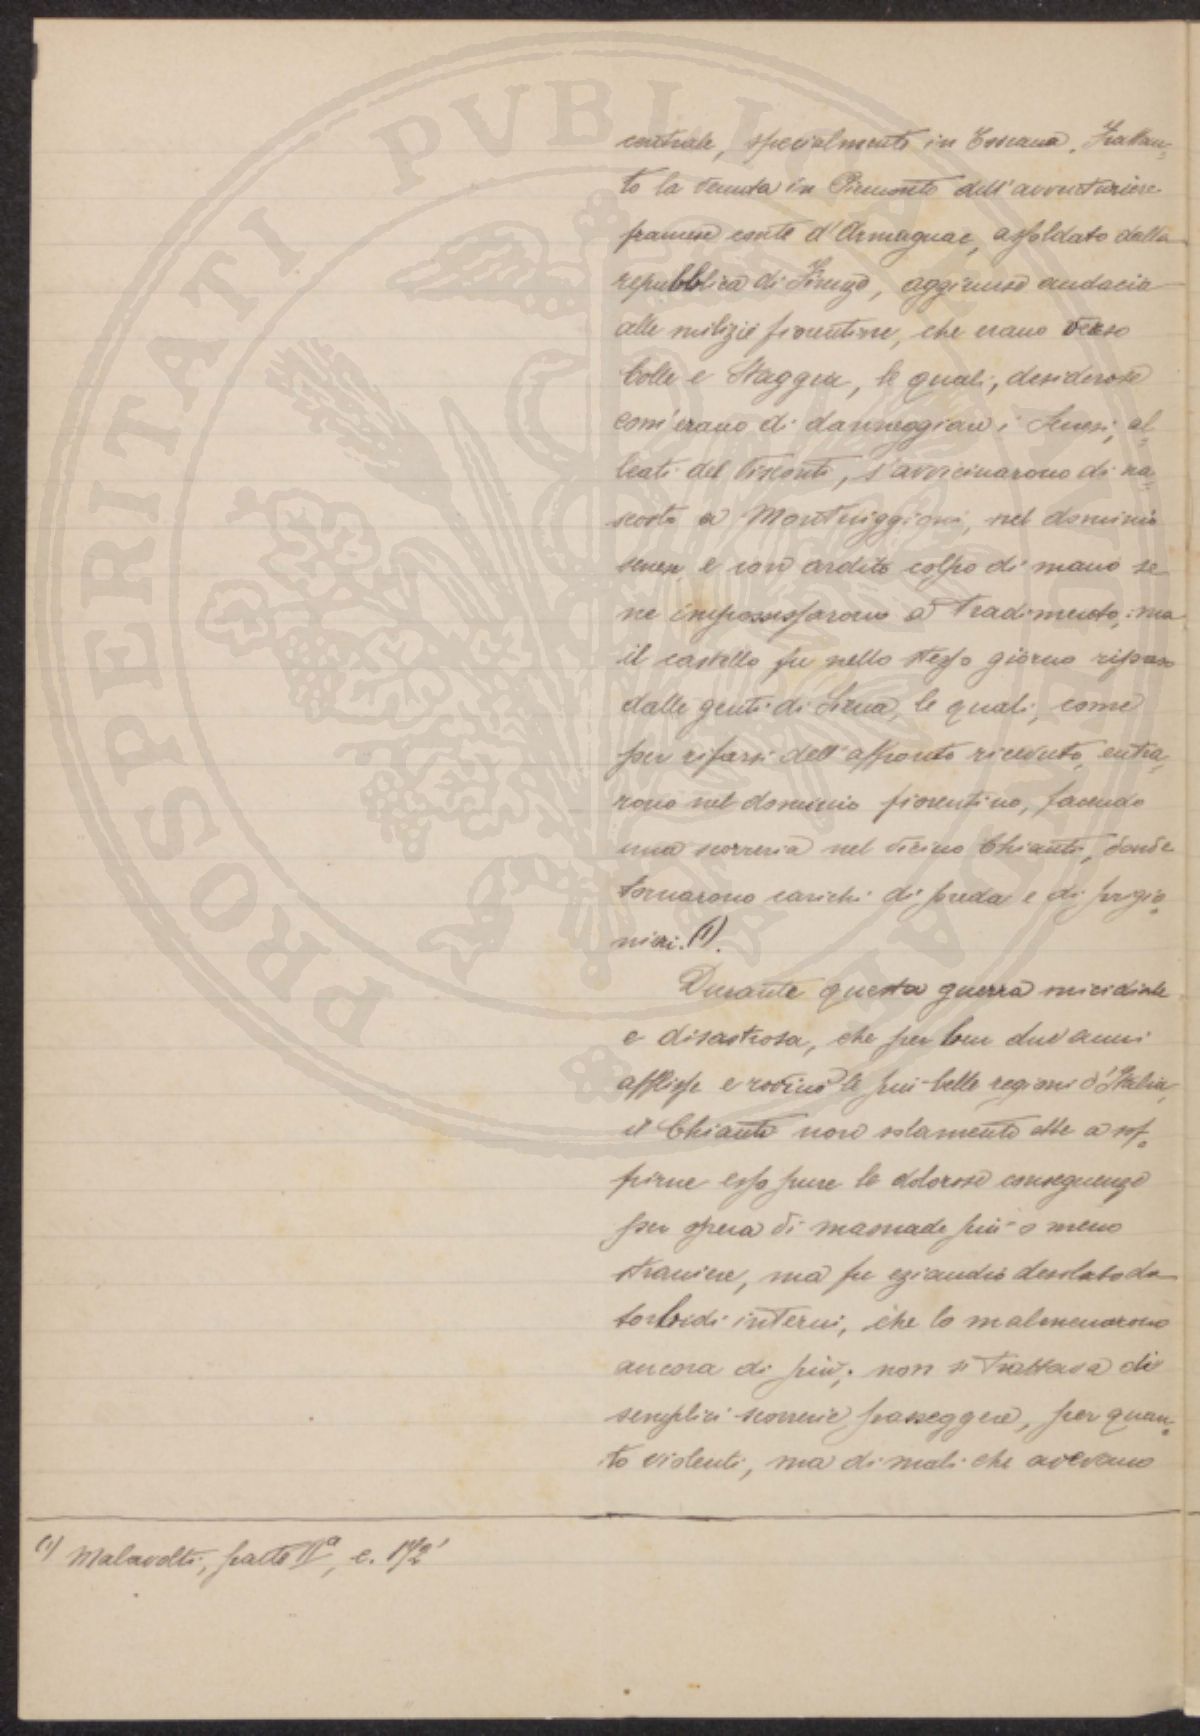 centrale, specialmente in Toscana. Frattan-
to la venuta in Piemonte dell'avventuriere
francese conte d'Armagnac, assoldato dalla
repubblica di Firenze, aggiunse audacia
alle milizie fiorentine, che erano verso
Colle e Staggia, le quali, desiderose
com'erano di danneggiare i Senesi, al-
leati del Visconti, s'avvicinarono di na-
scosto a Montriggioni, nel dominio
senese, e con ardito colpo di mano se
ne impossessarono a tradimento; ma
il castello fu nello stesso giorno ripreso
dalle genti di Siena, le quali, come
per rifarsi dell'affronto ricevuto, entra-
rono nel dominio fiorentino, facendo
una scorreria nel vicino Chianti, donde
tornarono carichi di preda e di prigio-
nieri. (1).
Durante questa guerra micidiale
e disastrosa, che per ben due anni
afflisse e rovinò le più belle regioni d'Italia,
il Chianti non solamente ebbe a sof-
frirne esso pure le dolorose conseguenze
per opera di masnade più o meno
straniere, ma fu eziandio desolato da
torbidi interni, che lo malmenarono
ancora di più; non si trattava di
semplici scorrerie passeggere, per quan-
to violenti, ma di mali che avevano
(1) Malavolti, parte IIª, c. 172'
PROSPERITATI PVBLICAE